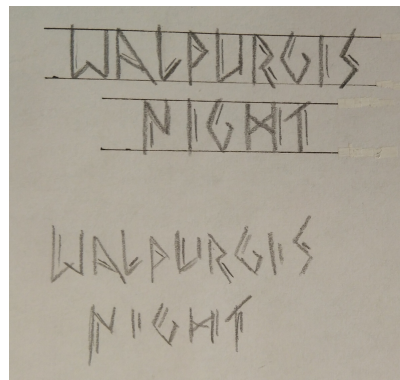 WALPURGIS
NIGHT
WALPURGIS
NIGHT